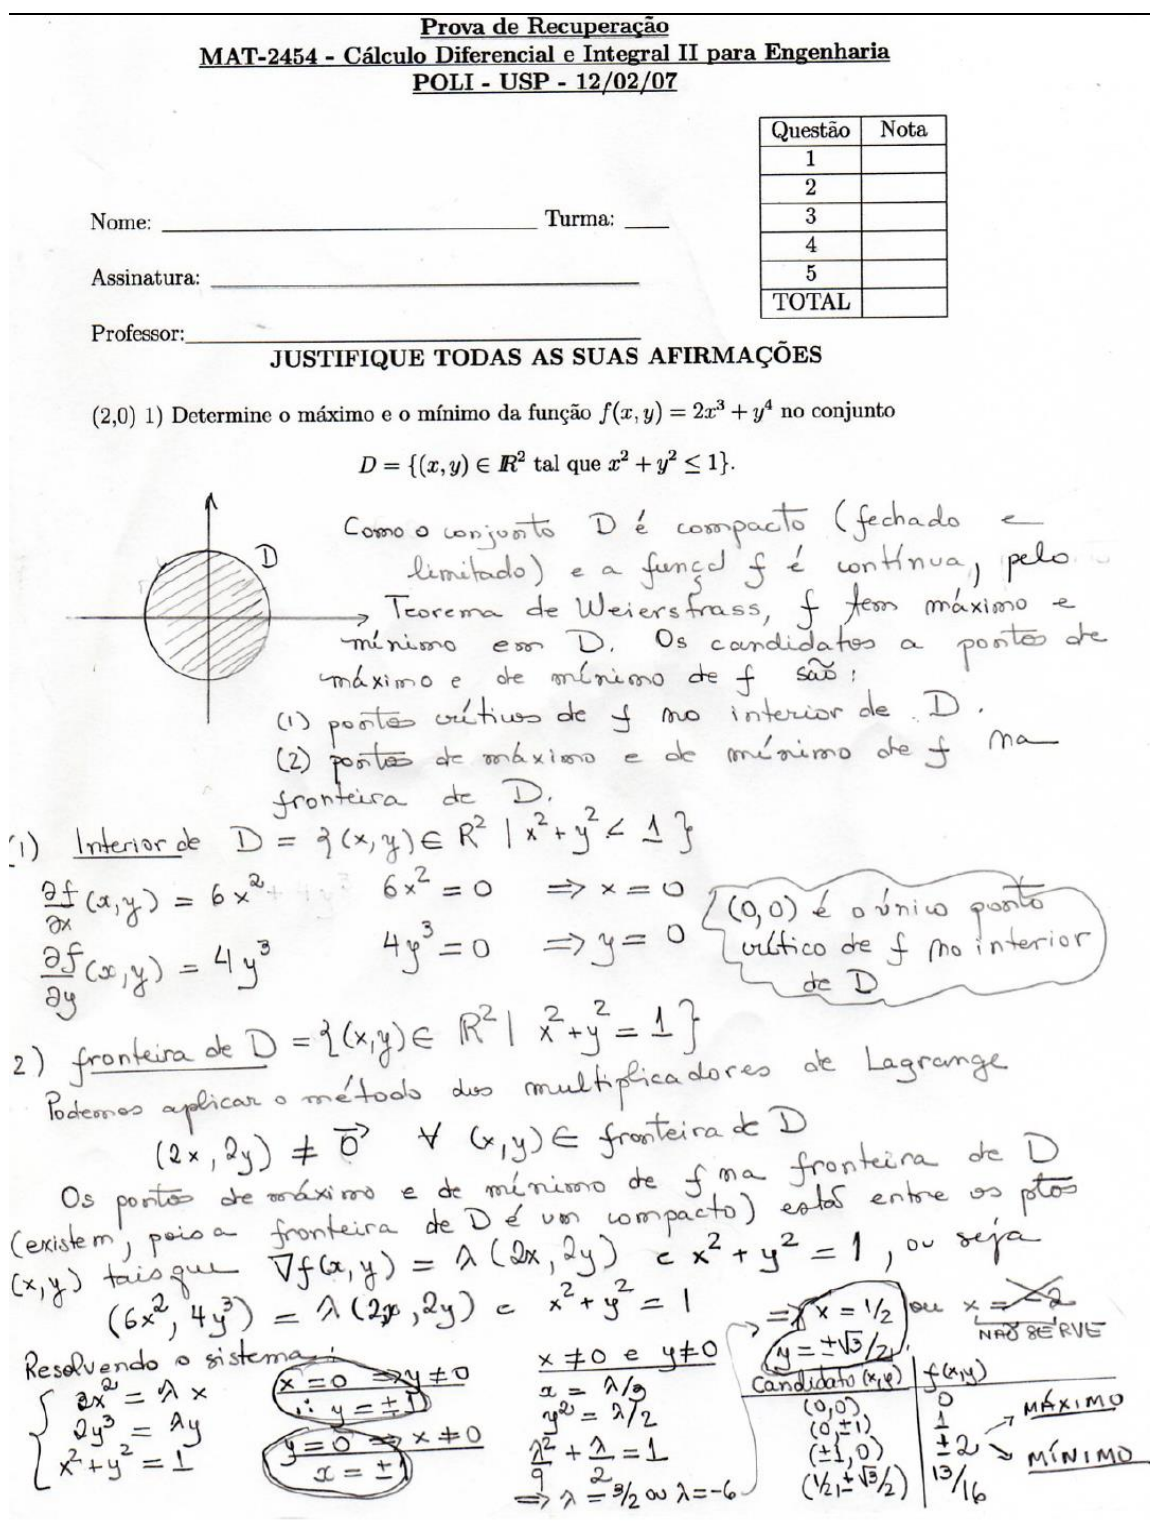 Prova de Recuperação
MAT-2454 - Cálculo Diferencial e Integral II para Engenharia
POLI - USP - 12/02/07
Questão Nota
1
2
3
4
5
TOTAL
Nome: Turma:
Assinatura:
Professor:
JUSTIFIQUE TODAS AS SUAS AFIRMAÇÕES
(2,0) 1) Determine o máximo e o mínimo da função f(x, y) = 2x³ + y⁴ no conjunto
D = {(x, y) ∈ ℝ² tal que x² + y² ≤ 1}.
D
Como o conjunto D é compacto (fechado e
limitado) e a função f é contínua, pelo
Teorema de Weierstrass, f tem máximo e
mínimo em D. Os candidatos a pontos de
máximo e de mínimo de f são:
(1) pontos críticos de f no interior de D.
(2) pontos de máximo e de mínimo de f na
fronteira de D.
(1) Interior de D = {(x,y) ∈ R² | x²+y² < 1}
∂f/∂x (x,y) = 6x² 6x² = 0 ⇒ x = 0
∂f/∂y (x,y) = 4y³ 4y³ = 0 ⇒ y = 0
(0,0) é o único ponto
crítico de f no interior
de D
2) fronteira de D = {(x,y) ∈ ℝ² | x²+y² = 1}
Podemos aplicar o método dos multiplicadores de Lagrange
(2x, 2y) ≠ 0⃗ ∀ (x,y) ∈ fronteira de D
Os pontos de máximo e de mínimo de f na fronteira de D
(existem, pois a fronteira de D é um compacto) estão entre os ptos
(x,y) tais que ∇f(x,y) = λ(2x, 2y) e x² + y² = 1, ou seja
(6x², 4y³) = λ(2x, 2y) e x² + y² = 1
Resolvendo o sistema:
3x² = λx
2y³ = λy
x² + y² = 1
x = 0 ⇒ y ≠ 0
∴ y = ±1
y = 0 ⇒ x ≠ 0
x = ±1
x ≠ 0 e y ≠ 0
x = λ/3
y² = λ/2
λ²/9 + λ/2 = 1
⇒ λ = 3/2 ou λ = -6
⇒ x = 1/2 ou x = -2
NÃO SERVE
y = ±√3/2
Candidato (x,y) f(x,y)
(0,0) 0
(0,±1) 1
(±1,0) ±2 MÁXIMO MÍNIMO
(1/2,±√3/2) 13/16